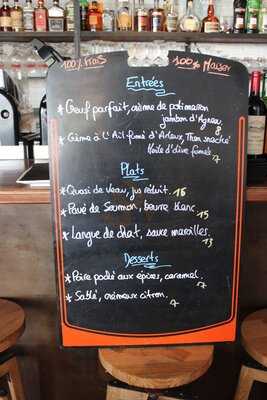 100% Frais
100% Maison
Entrées
* Oeuf parfait, crème de potimaron
jambon d'Agneau 8
* Crème à l'Ail fumé d'Arleux, Thon snacké
Huile d'olive fumée 7
Plats
* Quasi de Veau, jus réduit. 16
* Pavé de Saumon, beurre blanc. 15
* Langue de chat, sauce maroilles. 13
Desserts
* Poire poché aux épices, caramel. 7
* Sablé, crémeux citron. 7